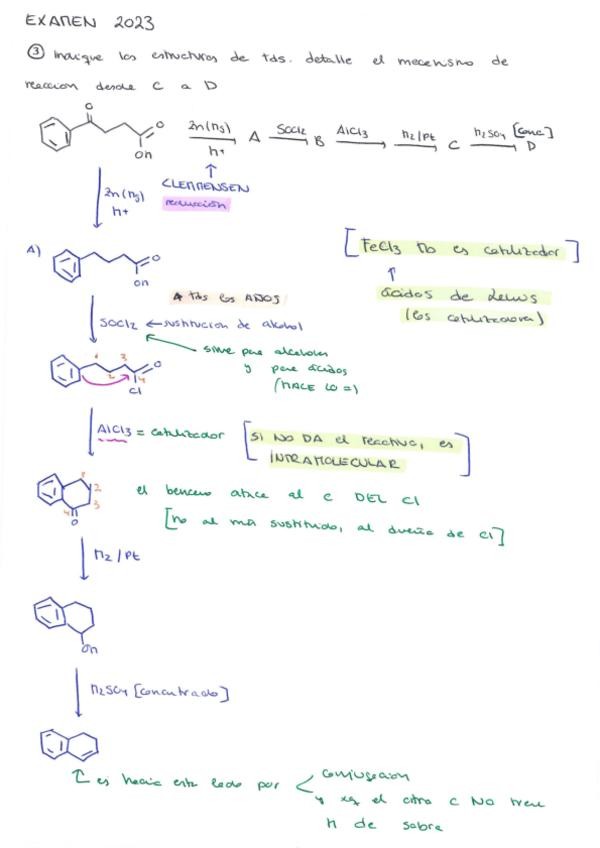 EXAMEN 2023
③ Indique las estructuras de tds. detalle el mecanismo de
reacción desde C a D
O
O
OH
Zn(Hg)
H+
A
SOCl2
B
AlCl3
H2/Pt
C
H2SO4 [conc]
D
↑
CLEMMENSEN
reducción
Zn(Hg)
H+
[FeCl3 no es catalizador]
↑
ácidos de Lewis
(los catalizadores)
A)
O
OH
* tds los AÑOS
SOCl2 ← sustitución de alcohol
sirve para alcoholes
y para ácidos
(HACE LO =)
1
2
3
4
O
Cl
AlCl3 = catalizador
[SI NO DA el reactivo, es
INTRAMOLECULAR]
1
2
3
4
O
el benceno ataca al C DEL Cl
[no al más sustituido, al dueño de Cl]
H2/Pt
OH
H2SO4 [concentrado]
↑ es hacia este lado por
conjugación
y xq el otro C NO tiene
H de sobra